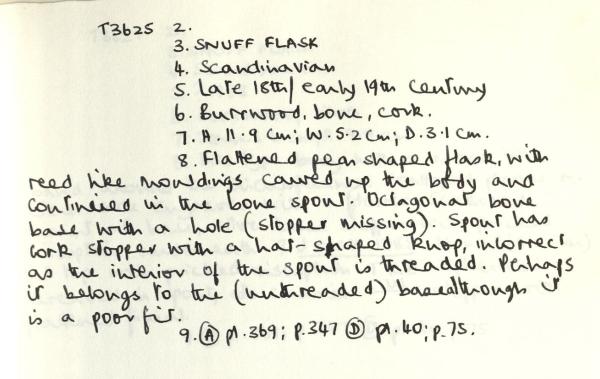 T3625 2.
3. SNUFF FLASK
4. Scandinavian
5. Late 18th/early 19th century
6. Burrwood, bone, cork.
7. H. 11.9 cm; W. 5.2 cm; D. 3.1 cm.
8. Flattened pear shaped flask, with
reed like mouldings carved up the body and
continued in the bone spout. Octagonal bone
base with a hole (stopper missing). Spout has
cork stopper with a hat-shaped knop, incorrect
as the interior of the spout is threaded. Perhaps
it belongs to the (unthreaded) base although it
is a poor fit.
9. Ⓐ pl. 369; p. 347 Ⓓ pl. 40; p. 75.